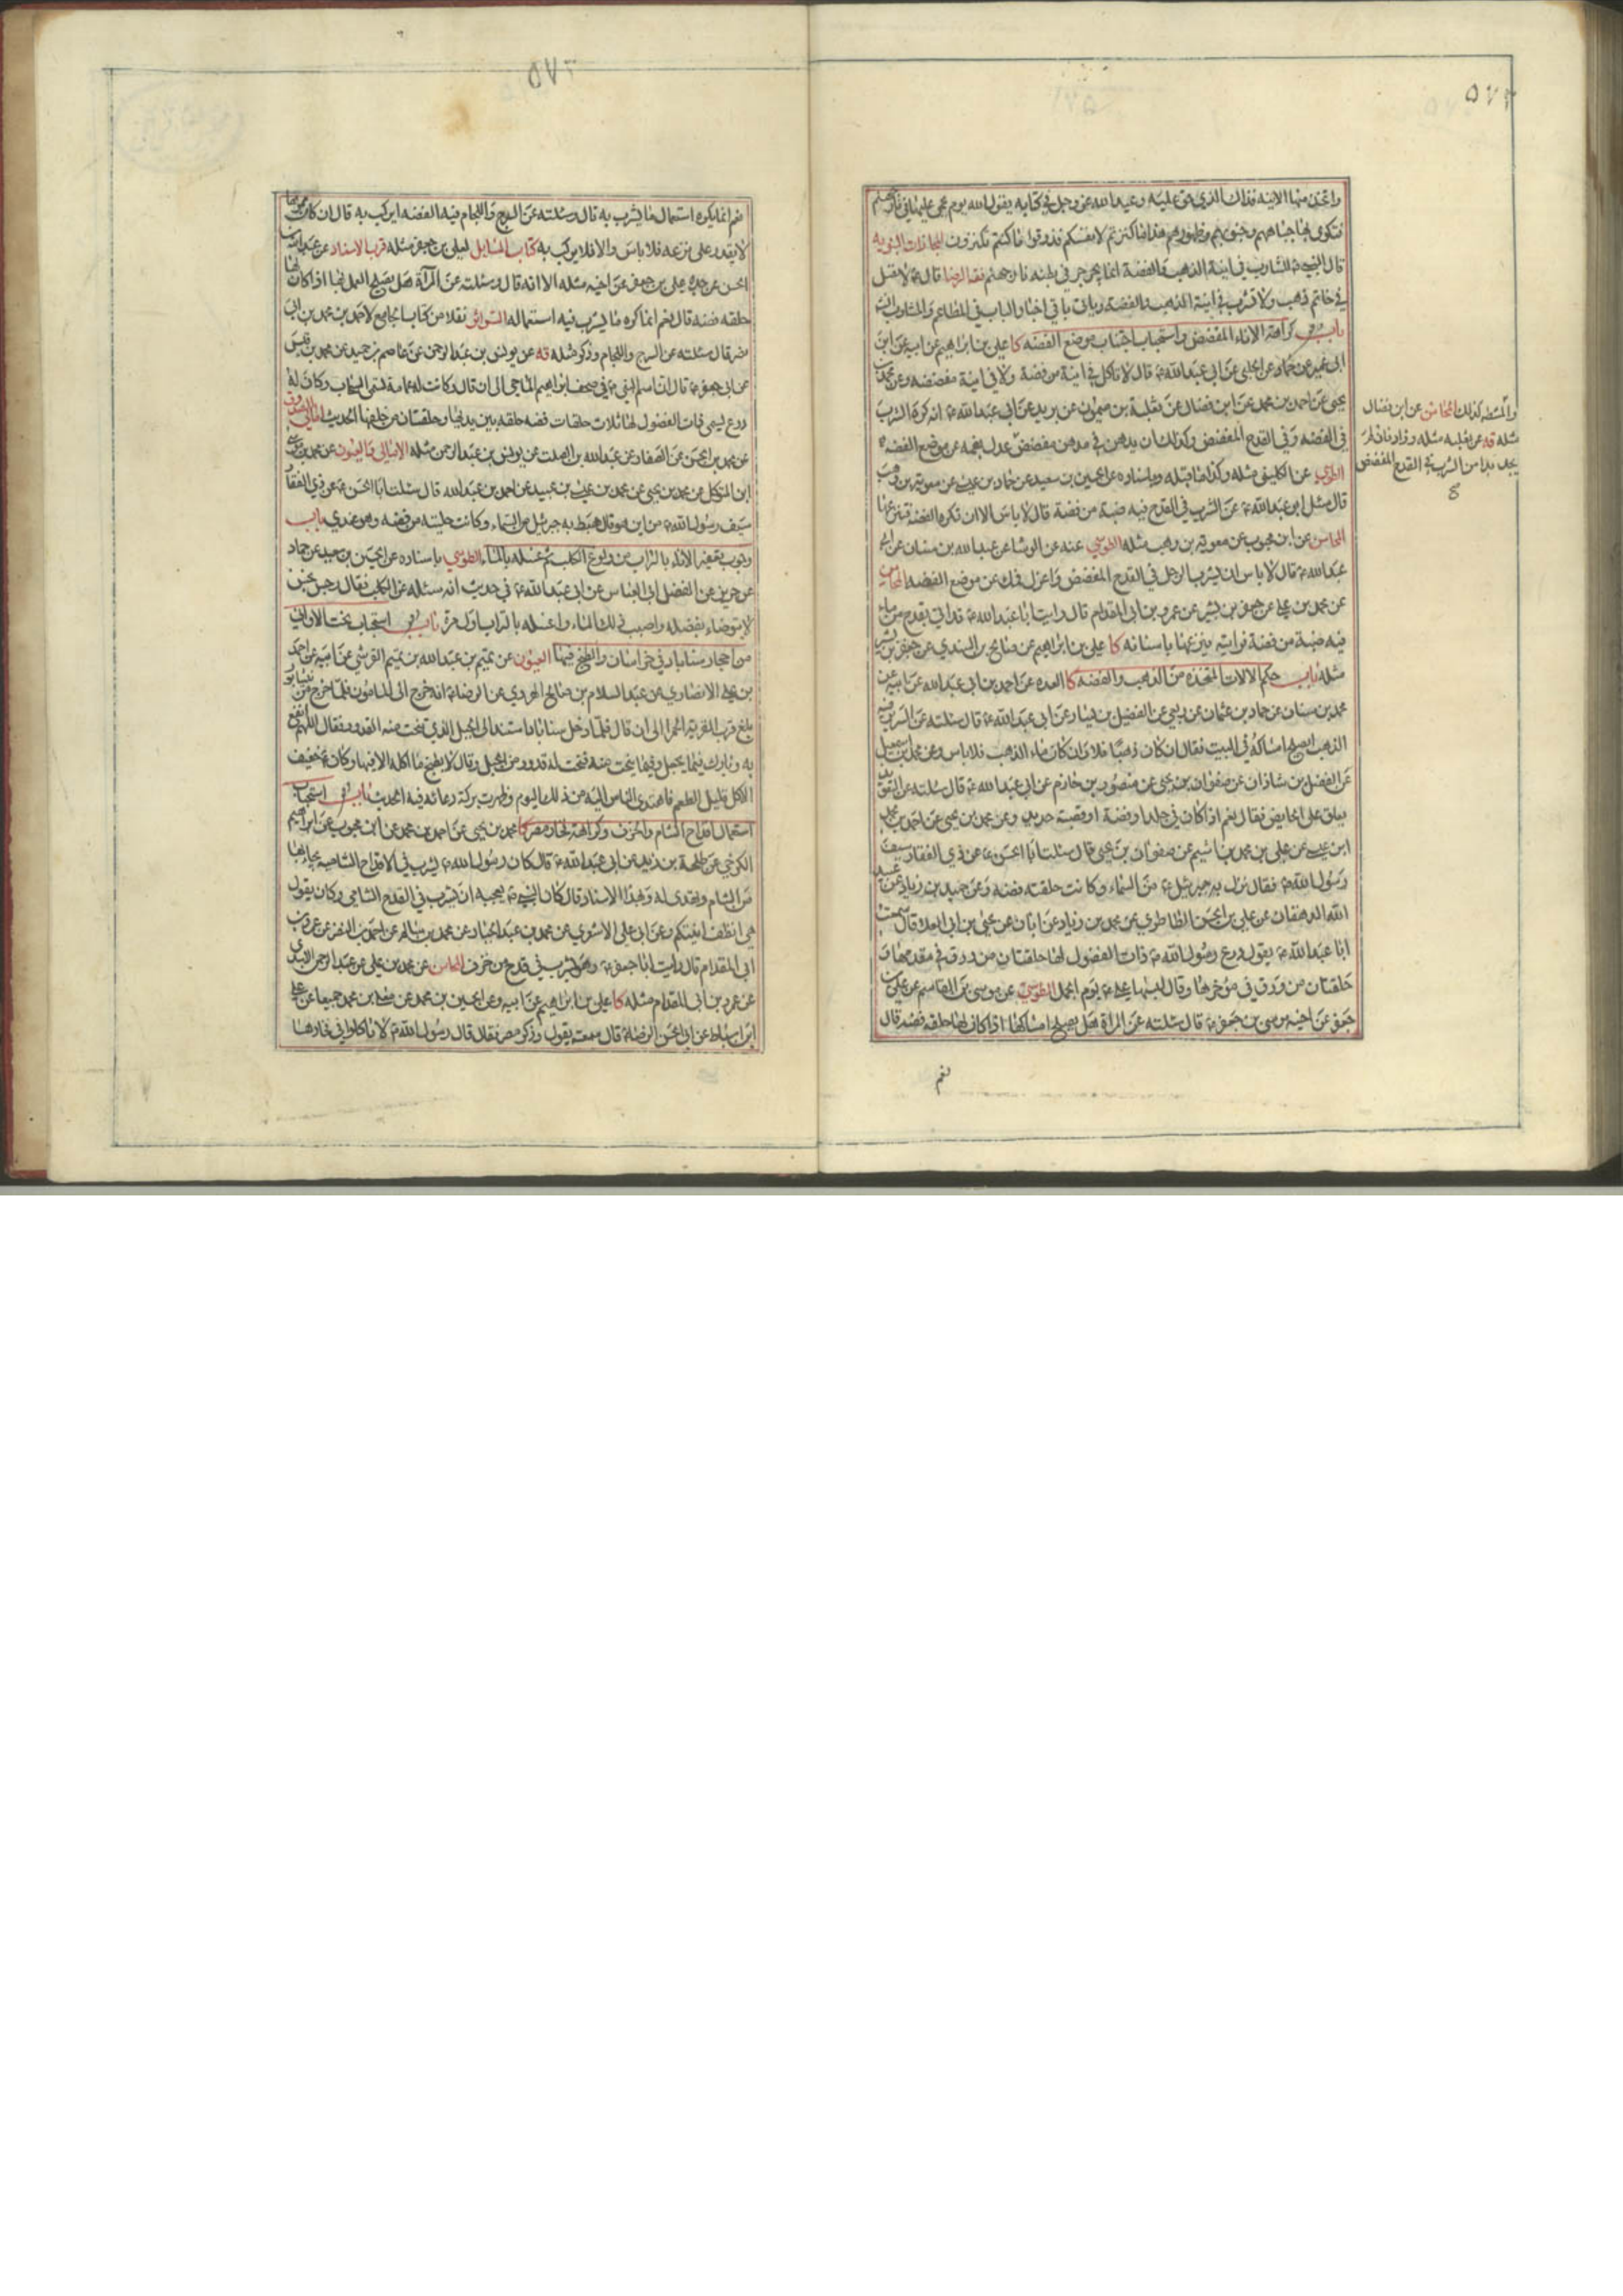 واتخذ منها الانية فذلك الذي حق عليه وعيد الله عز وجل في كتابه يقول الله يوم يحمى عليها في نار جهنم
فتكوى بها جباههم وجنوبهم وظهورهم هذا ما كنزتم لانفسكم فذوقوا ما كنتم تكنزون المجازات النبويه
قال النبي ص للشارب في انية الذهب والفضة انما يجرجر في بطنه نار جهنم فقه الرضا قال ع لا تصل
في خاتم ذهب ولا تشرب في انية الذهب والفضة وياتي باقي اخبار الباب في المطاعم والمشارب انش
باب كراهة الاناء المفضض واستحباب اجتناب موضع الفضة كا علي بن ابراهيم عن ابيه عن ابن
ابي عمير عن حماد عن الحلبي عن ابي عبد الله ع قال لا تاكل في انية من فضة ولا في انية مفضضه وعن محمد بن
يحيى عن احمد بن محمد عن ابن فضال عن ثعلبة بن ميمون عن بريد عن ابي عبد الله ع انه كره الشرب
في الفضه وفي القدح المفضض وكذلك ان يدهن في مدهن مفضض
والمشطه كذلك المحاسن عن ابن فضال
مثله قه عن ثعلبه مثله وزاد فان لم
يجد بدا من الشرب في القدح المفضض
عدل بفمه عن موضع الفضه
الطوسي عن الكليني مثله وكذا ما قبله وباسناده عن الحسين بن سعيد عن حماد بن عيسى عن معويه بن وهب
قال سئل ابو عبد الله ع عن الشرب في القدح فيه ضبة من فضة قال لا باس الا ان تكره الفضة فتنزعها
المحاسن عن ابن محبوب عن معويه بن وهب مثله الطوسي عنه عن الوشا عن عبد الله بن سنان عن ابي
عبد الله ع قال لا باس ان يشرب الرجل في القدح المفضض واعزل فمك عن موضع الفضه المحاسن
عن محمد بن علي عن جعفر بن بشير عن عمرو بن ابي المقدام قال رايت ابا عبد الله ع قد اتي بقدح من ماء
فيه ضبة من فضة فرايته ينزعها باسنانه كا علي بن ابراهيم عن صالح بن السندي عن جعفر بن بشير
مثله باب حكم الالات المتخذه من الذهب والفضه كا العده عن احمد بن ابي عبد الله عن ابيه عن
محمد بن سنان عن حماد بن عثمان عن ربعي عن الفضيل بن يسار عن ابي عبد الله ع قال سئلته عن السرير فيه
الذهب ايصلح امساكه في البيت فقال ان كان ذهبا فلا وان كان ماء الذهب فلا باس وعن محمد بن اسمعيل
عن الفضل بن شاذان عن صفوان بن يحيى عن منصور بن حازم عن ابي عبد الله ع قال سئلته عن التعويذ
يعلق على الحايض فقال نعم اذا كان في جلد او فضة او قصبة حديد وعن محمد بن يحيى عن احمد بن محمد
ابن عيسى عن علي بن محمد بن اشيم عن صفوان بن يحيى قال سئلت ابا الحسن ع عن ذي الفقار سيف
رسول الله ص فقال نزل به جبرئيل ع من السماء وكانت حلقته فضة وعن حميد بن زياد عن عبيد
الله الدهقان عن علي بن الحسن الطاطري عن محمد بن زياد عن ابان عن يحيى بن ابي العلا قال سمعت
ابا عبد الله ع يقول درع رسول الله ص ذات الفضول لها حلقتان من ورق في مقدمها و
حلقتان من ورق في مؤخرها وقال لبسها علي ع يوم الجمل الطوسي عن موسى بن القاسم عن علي بن
جعفر عن اخيه موسى بن جعفر ع قال سئلته عن المراة هل يصلح امساكها اذا كان لها حلقه فضه قال
نعم
نعم انما يكره استعمال ما يشرب به قال وسئلته عن السرج واللجام فيه الفضه ايركب به قال ان كان مموها
لا يقدر على نزعه فلا باس والا فلا يركب به كتاب المسايل لعلي بن جعفر مثله قرب الاسناد عن عبد الله بن
الحسن عن جده علي بن جعفر عن اخيه مثله الا انه قال وسئلته عن المرآة هل يصلح العمل بها اذا كان لها
حلقه فضه قال نعم انما كره ما يشرب فيه استعماله السرائر نقلا من كتاب الجامع لاحمد بن محمد بن ابي
نصر قال سئلته عن السرج واللجام وذكر مثله قه عن يونس بن عبد الرحمن عن عاصم بن حميد عن محمد بن قيس
عن ابي جعفر ع قال ان اسم النبي ص في صحف ابراهيم الماحي الى ان قال وكانت له عمامة تسمى السحاب وكان له
درع يسمى ذات الفضول لها ثلاث حلقات فضه حلقه بين يديها وحلقتان من خلفها الحديث امالي الصدوق
عن محمد بن الحسن عن الصفار عن عبد الله بن الصلت عن يونس بن عبد الرحمن مثله الامالي والعيون عن محمد بن موسى
ابن المتوكل عن محمد بن يحيى عن محمد بن عيسى بن عبيد عن احمد بن عبد الله قال سئلت ابا الحسن ع عن ذي الفقار
سيف رسول الله ص من اين هو قال هبط به جبرئيل من السماء وكانت حليته من فضه وهو عندي باب
وجوب تعفير الاناء بالتراب من ولوغ الكلب ثم غسله بالماء الطوسي باسناده عن الحسين بن سعيد عن حماد
عن حريز عن الفضل ابي العباس عن ابي عبد الله ع في حديث انه سئله عن الكلب فقال رجس نجس
لا يتوضاء بفضله واصبب ذلك الماء واغسله بالتراب اول مرة باب استحباب نحت الاواني
من احجار سناباد في خراسان والطبخ فيها العيون عن تميم بن عبد الله بن تميم القرشي عن ابيه عن احمد
بن علي الانصاري عن عبد السلام بن صالح الهروي عن الرضا ع انه خرج الى المامون فلما خرج من نيسابور
بلغ قرب القريه الحمرا الى ان قال فلما دخل سناباد استند الى الجبل الذي تنحت منه القدور فقال اللهم انفع
به وبارك فيما يجعل وفيما ينحت منه فنحت له قدور من الجبل وقال لا يطبخ ما اكله الا فيها وكان ع خفيف
الاكل قليل الطعم فاهتدى الناس اليه من ذلك اليوم وظهرت بركة دعائه فيه الحديث باب استحباب
استعمال اقداح الشام والخزف وكراهة فخار مصر كا محمد بن يحيى عن احمد بن محمد عن ابن محبوب عن ابراهيم
الكرخي عن طلحة بن زيد عن ابي عبد الله ع قال كان رسول الله ص يشرب في الاقداح الشاميه يجاء بها
من الشام وتهدى له وبهذا الاسناد قال كان النبي ص يعجبه ان يشرب في القدح الشامي وكان يقول
هي انظف انيتكم وعن ابي علي الاشعري عن محمد بن عبد الجبار عن محمد بن سالم عن احمد بن النضر عن عمرو بن
ابي المقدام قال رايت ابا جعفر ع وهو يشرب في قدح من خزف المحاسن عن محمد بن علي عن عبد الرحمن الاسدي
عن عمرو بن ابي المقدام مثله كا علي بن ابراهيم عن ابيه وعن الحسين بن محمد عن معلى بن محمد جميعا عن علي
ابن اسباط عن ابي الحسن الرضا ع قال سمعته يقول وذكر مصر فقال قال رسول الله ص لا تاكلوا في فخارها